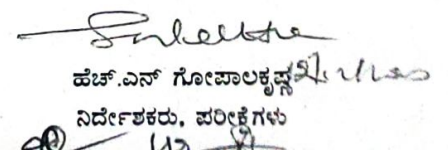 ಹೆಚ್.ಎನ್ ಗೋಪಾಲಕೃಷ್ಣ
ನಿರ್ದೇಶಕರು, ಪರೀಕ್ಷೆಗಳು